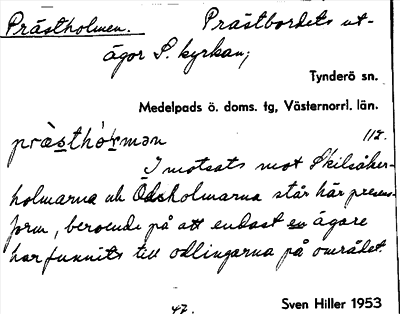 Prästholmen. Prästbordets ut-
ägor S. kyrkan;
Tynderö sn.
Medelpads ö. doms. tg, Västernorrl. län.
præ̀sthɷ́rmən 112.
I motsats mot Skilsåker-
holmarna och Odsholmarna står här presens-
form, beroende på att endast en ägare
har funnits till odlingarna på området.
47. Sven Hiller 1953